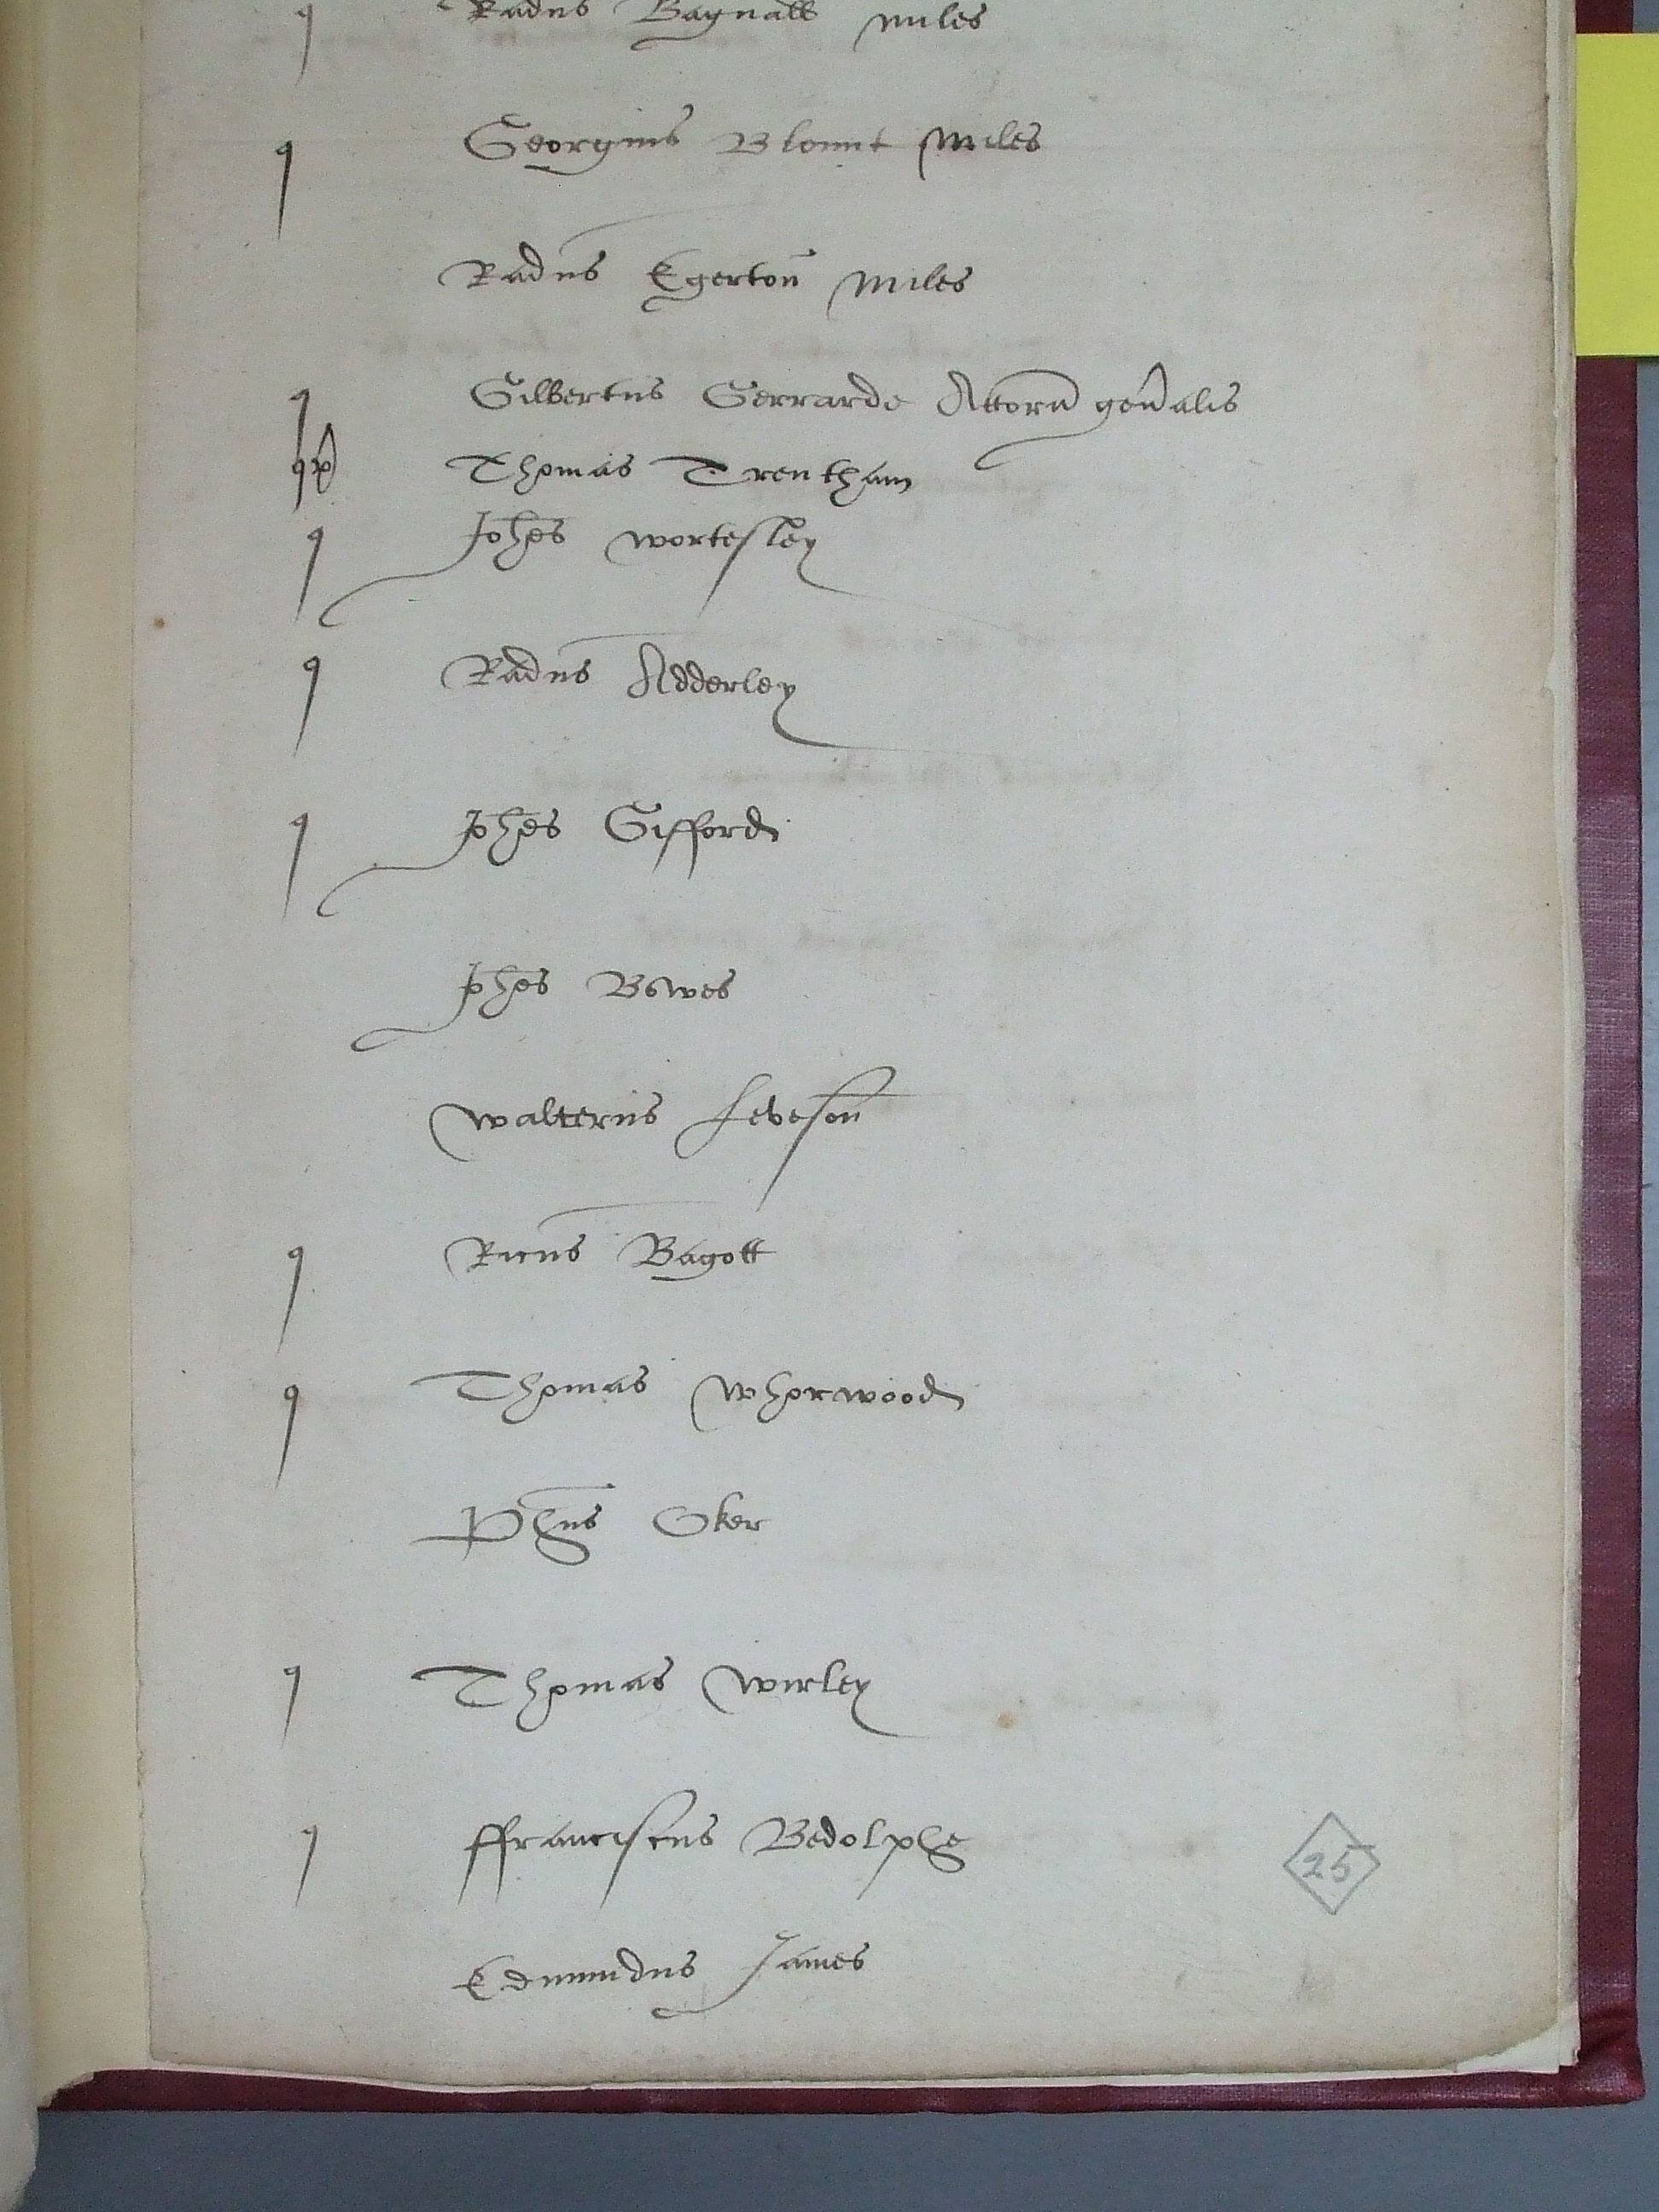 q Radus Bagnall miles
q Georgius Blount Miles
Radus Egerton Miles
q Gilbertus Gerrarde Attorn gen'alis
q Thomas Trentham
q Johes wortesley
q Radus Adderley
q Johes Gifford
Johes Bowes
Walterus Leveson
q Ricus Bagott
q Thomas Whorwood
Phus Oker
q Thomas Wirley
q ffranciscus Bedolphe
25
Edmundus James